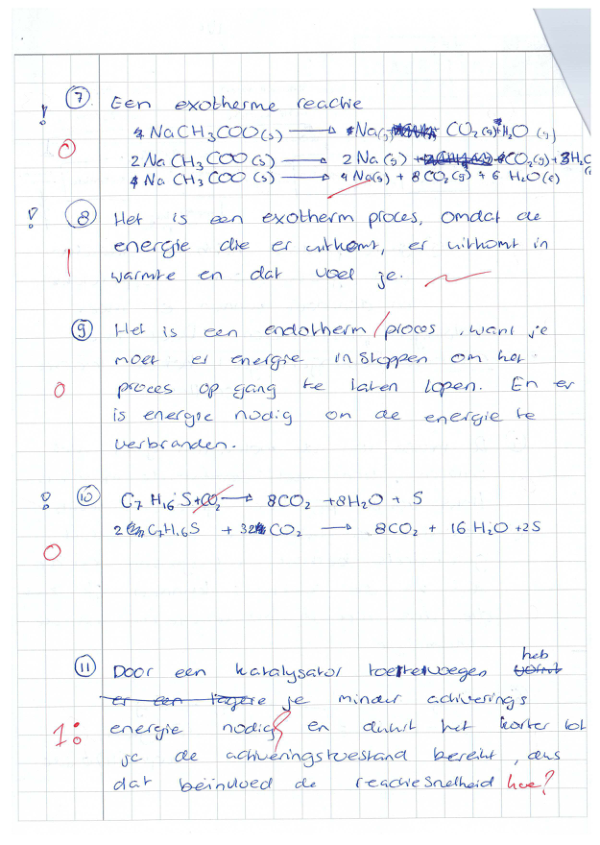 7 Een exotherme reactie
! 4 NaCH₃COO(s) → 4Na(s)+ CO₂(g)+H₂O (g)
0 2 NaCH₃COO(s) → 2 Na(s) + 4CO₂(g)+ 3H₂O
4 NaCH₃COO(s) → 4 Na(s) + 8 CO₂(g) + 6 H₂O(l)
! 8 Het is een exotherm proces, omdat de
energie die er uitkomt, er uitkomt in
1 warmte en dat voel je.
9 Het is een endotherm proces, want je
moet er energie in stoppen om het
0 proces op gang te laten lopen. En er
is energie nodig om de energie te
verbranden.
10 C₇H₁₆S+O₂ → 8CO₂ +8H₂O + S
2 C₇H₁₆S + 32 CO₂ → 8CO₂ + 16 H₂O +2S
0
heb
11 Door een katalysator toe te voegen wordt
er een lagere je minder activerings
1 energie nodig en duurt het korter tot
je de activeringstoestand bereikt, dus
dat beïnvloed de reactiesnelheid hoe?